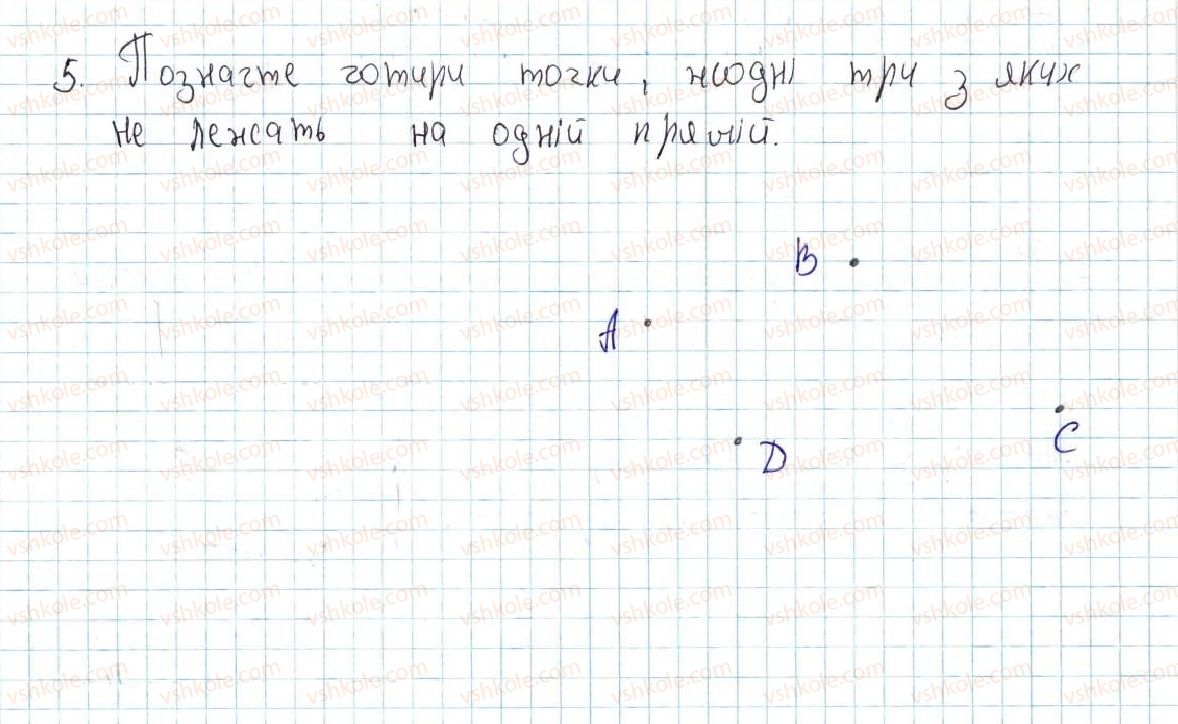 5. Позначте чотири точки, жодні три з яких
не лежать на одній прямій.
B
A
C
D
vshkole.com